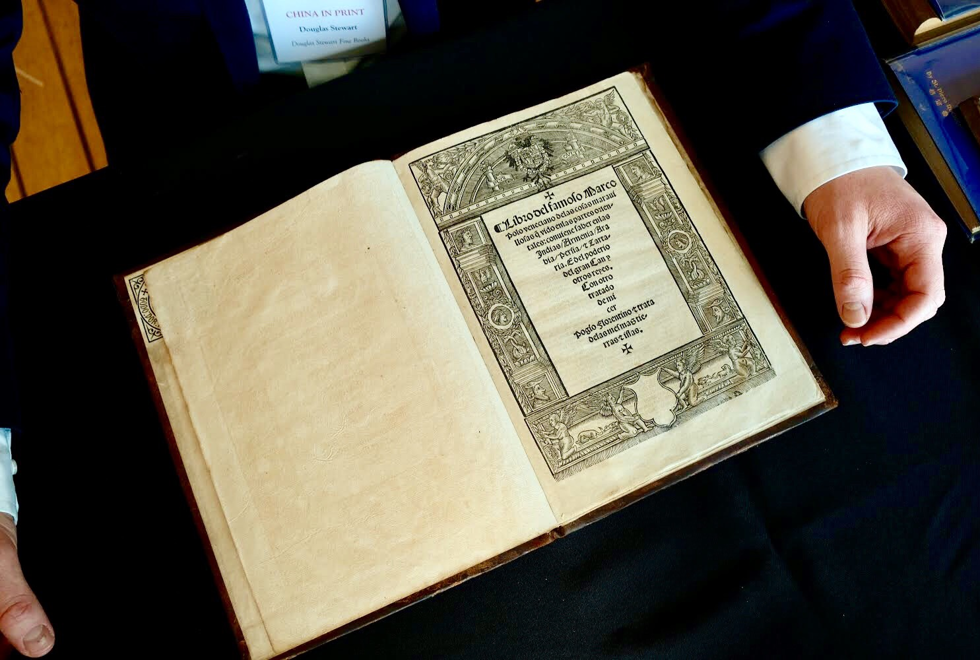 CHINA IN PRINT
Douglas Stewart
Douglas Stewart Fine Books
☾Libro del famoso Marco
polo veneciano delas cosas maraui
llosas q̃ vido enlas partes orien-
tales: conuiene saber enlas
Indias / Armenia / Ara
bia / Persia / ⁊ Tarta-
ria. E del poderio
del gran Can y
otros reyes.
Con otro
tratado
de mi
cer
Pogio Florentino ⁊ trata
delas mesmas tie-
rras ⁊ islas.